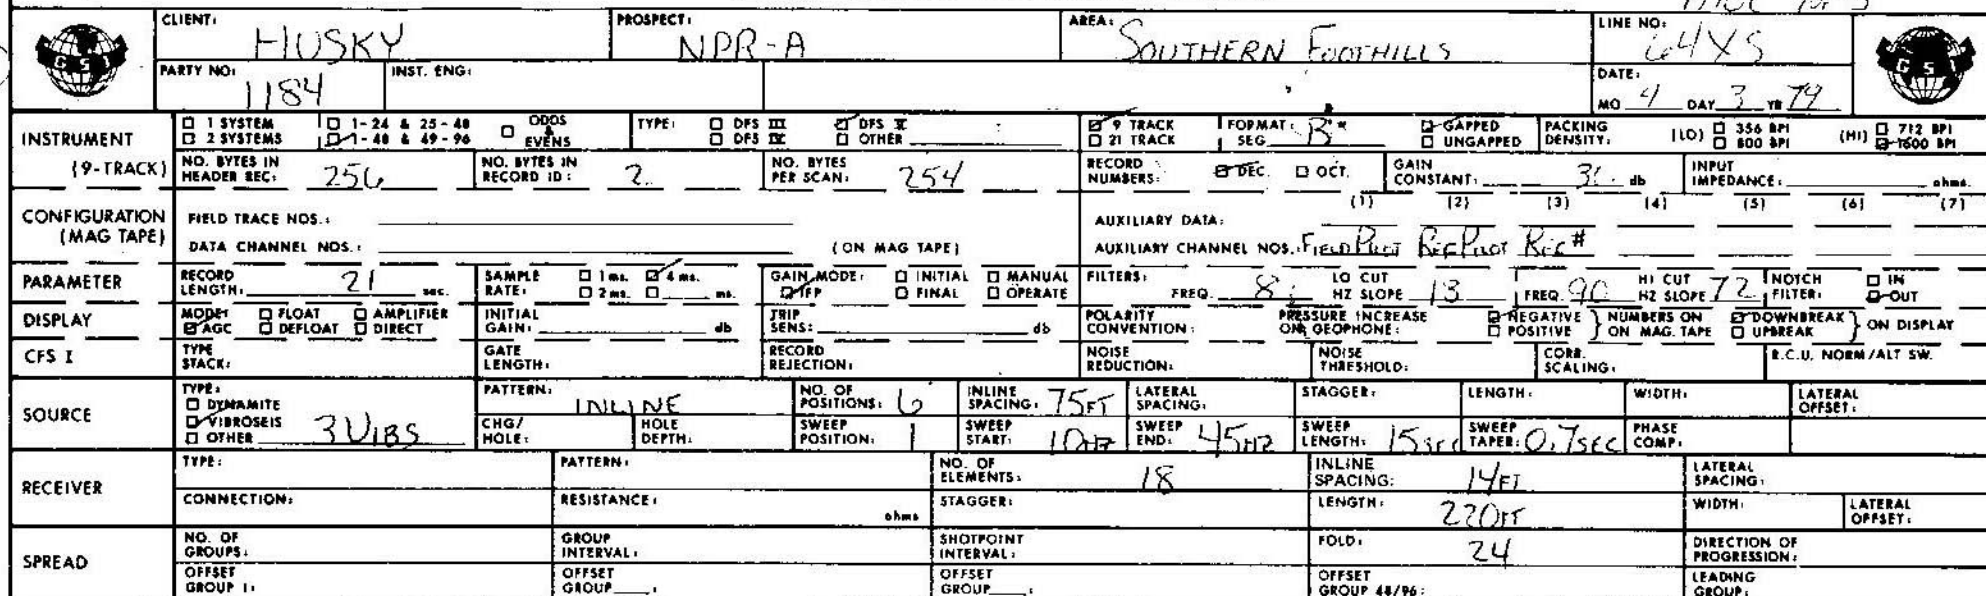 CLIENT: HUSKY PROSPECT: NPR-A AREA: SOUTHERN FOOTHILLS LINE NO: 64XS
GSI GSI
PARTY NO: 1184 INST. ENG: DATE: MO 4 DAY 3 YR 79
INSTRUMENT (9-TRACK)
1 SYSTEM 1-24 & 25-48 ODDS & EVENS TYPE: DFS III DFS V 9 TRACK FORMAT: SEG B GAPPED PACKING DENSITY: (LO) 356 BPI (HI) 712 BPI
2 SYSTEMS 1-48 & 49-96 DFS IV OTHER 21 TRACK UNGAPPED 800 BPI 1600 BPI
NO. BYTES IN HEADER REC: 256 NO. BYTES IN RECORD ID: 2 NO. BYTES PER SCAN: 254 RECORD NUMBERS: DEC. OCT. GAIN CONSTANT: db INPUT IMPEDANCE: ohms.
CONFIGURATION (MAG TAPE)
FIELD TRACE NOS.: AUXILIARY DATA: (1) (2) (3) (4) (5) (6) (7)
DATA CHANNEL NOS.: (ON MAG TAPE) AUXILIARY CHANNEL NOS.: FIELD PILOT REC PILOT REC #
PARAMETER RECORD LENGTH: 21 sec. SAMPLE RATE: 1 ms. 4 ms. 2 ms. ms. GAIN MODE: INITIAL MANUAL IFP FINAL OPERATE FILTERS: FREQ. 8 LO CUT HZ SLOPE 13 FREQ. 90 HI CUT HZ SLOPE 72 NOTCH FILTER: IN OUT
DISPLAY MODE: FLOAT AMPLIFIER AGC DEFLOAT DIRECT INITIAL GAIN: db TRIP SENS: db POLARITY CONVENTION: PRESSURE INCREASE ON GEOPHONE: NEGATIVE POSITIVE NUMBERS ON ON MAG. TAPE DOWNBREAK UPBREAK ON DISPLAY
CFS I TYPE STACK: GATE LENGTH: RECORD REJECTION: NOISE REDUCTION: NOISE THRESHOLD: CORR. SCALING: R.C.U. NORM/ALT SW.
SOURCE
TYPE: DYNAMITE VIBROSEIS OTHER 3 VIBS PATTERN: INLINE NO. OF POSITIONS: 6 INLINE SPACING: 75FT LATERAL SPACING: STAGGER: LENGTH: WIDTH: LATERAL OFFSET:
CHG/HOLE: HOLE DEPTH: SWEEP POSITION: 1 SWEEP START: 10HZ SWEEP END: 45HZ SWEEP LENGTH: 15sec SWEEP TAPER: 0.7SEC PHASE COMP:
RECEIVER
TYPE: PATTERN: NO. OF ELEMENTS: 18 INLINE SPACING: 14FT LATERAL SPACING:
CONNECTION: RESISTANCE: ohms STAGGER: LENGTH: 220FT WIDTH: LATERAL OFFSET:
SPREAD
NO. OF GROUPS: GROUP INTERVAL: SHOTPOINT INTERVAL: FOLD: 24 DIRECTION OF PROGRESSION:
OFFSET GROUP 1: OFFSET GROUP : OFFSET GROUP : OFFSET GROUP 48/96: LEADING GROUP: